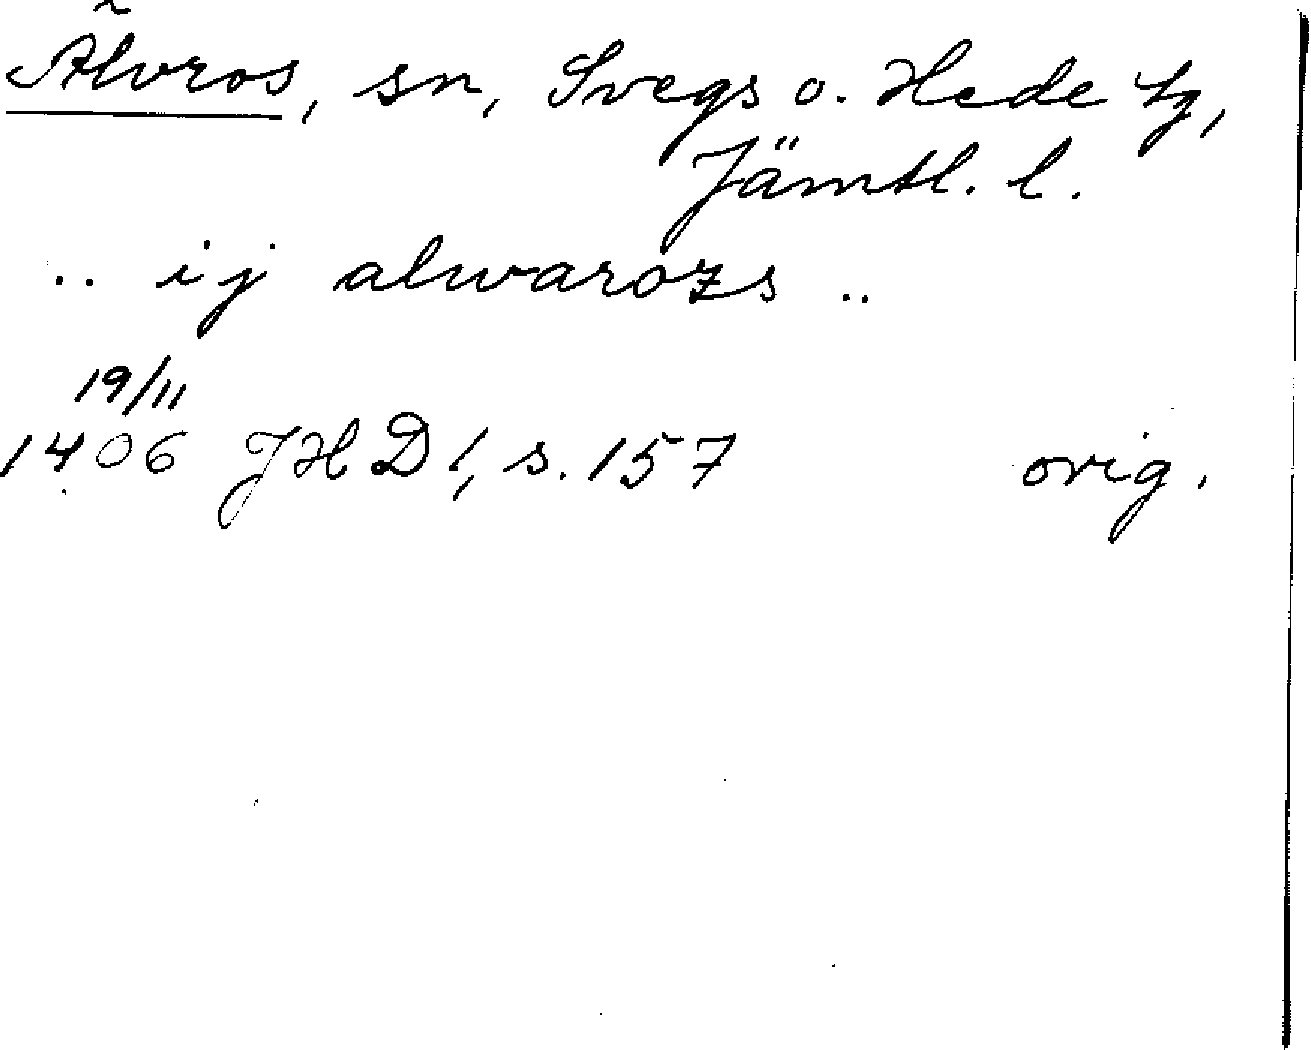 Älvros, sn, Svegs o. Hede tg,
Jämtl. l.
.. i j alwarozs ..
19/11
1406 JHD 1, s. 157 orig.